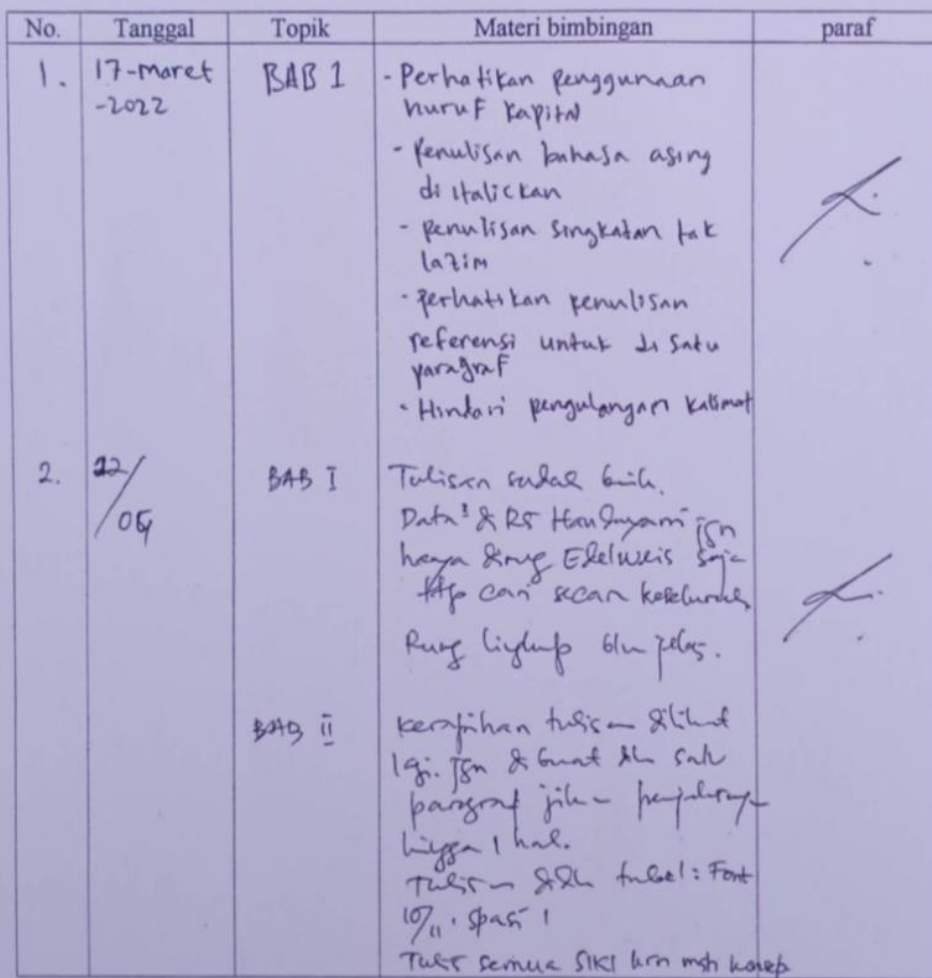 No. Tanggal Topik Materi bimbingan paraf
1. 17-maret BAB 1 - Perhatikan penggunaan
-2022 huruf kapital
- Penulisan bahasa asing
di italickan
- penulisan singkatan tak
lazim
- perhatikan penulisan
referensi untuk di satu
paragraf
- Hindari pengulangan kalimat
2. 22/ BAB I Tulisan sudah baik.
Data² RS Handayani jgn
hanya Edelweis saja
ttp cari secara keseluruhan
Ruang lingkup blm jelas.
BAB II kerapihan tulisan dilihat
lgi. jgn dibuat dlm satu
paragraf jika penjelasannya
hingga 1 hal.
Tulisan tabel: Font
10/11. spasi 1
Tulis semua SIKI krn msh